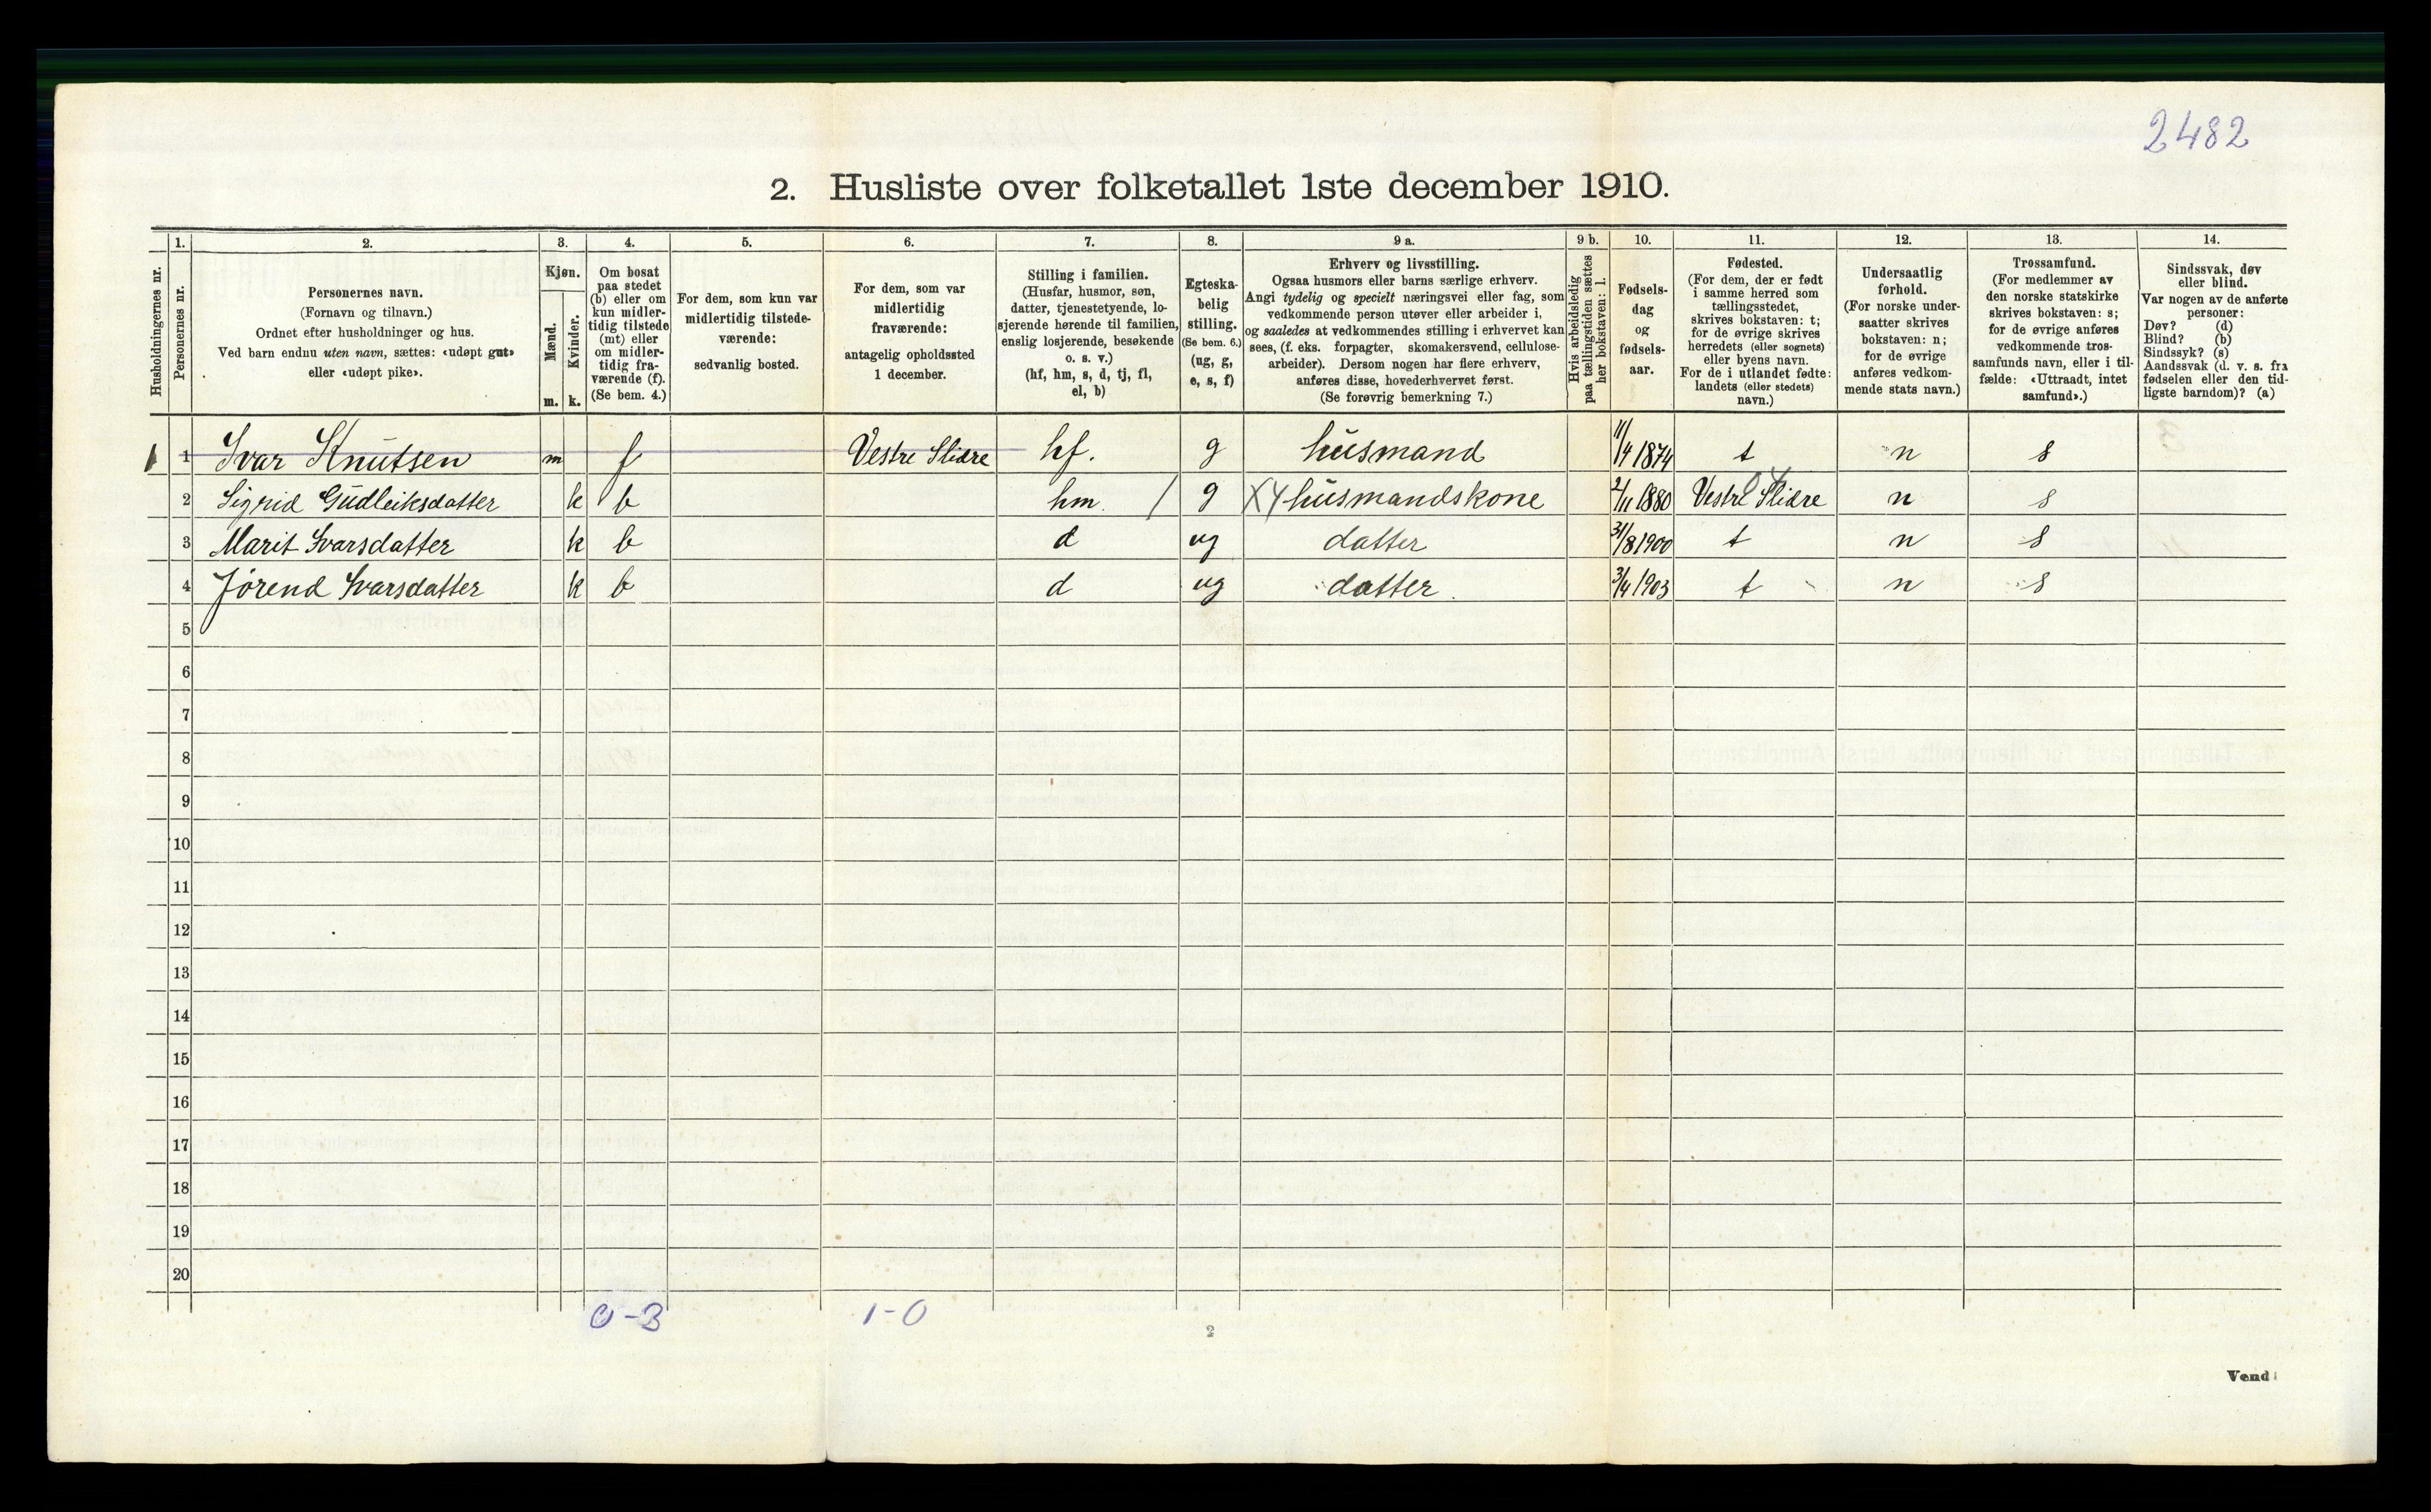 2482
2. Husliste over folketallet 1ste december 1910.
Husholdningernes nr.
1.
Personernes nr.
2.
Personernes navn.
(Fornavn og tilnavn.)
Ordnet efter husholdninger og hus.
Ved barn endnu uten navn, sættes: «udøpt gut»
eller «udøpt pike».
3.
Kjøn.
Mænd.
Kvinder.
m. k.
4.
Om bosat
paa stedet
(b) eller om
kun midler-
tidig tilstede
(mt) eller
om midler-
tidig fra-
værende (f).
(Se bem. 4.)
5.
For dem, som kun var
midlertidig tilstede-
værende:
sedvanlig bosted.
6.
For dem, som var
midlertidig
fraværende:
antagelig opholdssted
1 december.
7.
Stilling i familien.
(Husfar, husmor, søn,
datter, tjenestetyende, lo-
sjerende hørende til familien,
enslig losjerende, besøkende
o. s. v.)
(hf, hm, s, d, tj, fl,
el, b)
8.
Egteska-
belig
stilling.
(Se bem. 6.)
(ug, g,
e, s, f)
9 a.
Erhverv og livsstilling.
Ogsaa husmors eller barns særlige erhverv.
Angi tydelig og specielt næringsvei eller fag, som
vedkommende person utøver eller arbeider i,
og saaledes at vedkommendes stilling i erhvervet kan
sees, (f. eks. forpagter, skomakersvend, cellulose-
arbeider). Dersom nogen har flere erhverv,
anføres disse, hovederhvervet først.
(Se forøvrig bemerkning 7.)
9 b.
Hvis arbeidsledig
paa tællingstiden sættes
her bokstaven: l.
10.
Fødsels-
dag
og
fødsels-
aar.
11.
Fødested.
(For dem, der er født
i samme herred som
tællingsstedet,
skrives bokstaven: t;
for de øvrige skrives
herredets (eller sognets)
eller byens navn.
For de i utlandet fødte:
landets (eller stedets)
navn.)
12.
Undersaatlig
forhold.
(For norske under-
saatter skrives
bokstaven: n;
for de øvrige
anføres vedkom-
mende stats navn.)
13.
Trossamfund.
(For medlemmer av
den norske statskirke
skrives bokstaven: s;
for de øvrige anføres
vedkommende tros-
samfunds navn, eller i til-
fælde: «Uttraadt, intet
samfund».)
14.
Sindssvak, døv
eller blind.
Var nogen av de anførte
personer:
Døv? (d)
Blind? (b)
Sindssyk? (s)
Aandssvak (d. v. s. fra
fødselen eller den tid-
ligste barndom)? (a)
1 1 Ivar Knutsen m f Vestre Slidre hf. g husmand 11/4 1874 t n s
2 Sigrid Gudleiksdatter k b hm. / g X4 husmandskone 2/11 1880 Vestre Slidre n s
3 Marit Ivarsdatter k b d ug datter 31/8 1900 t n s
4 Jørend Ivarsdatter k b d ug datter. 3/4 1903 t n s
5
6
7
8
9
10
11
12
13
14
15
16
17
18
19
20
0-3 1-0
2
Vend